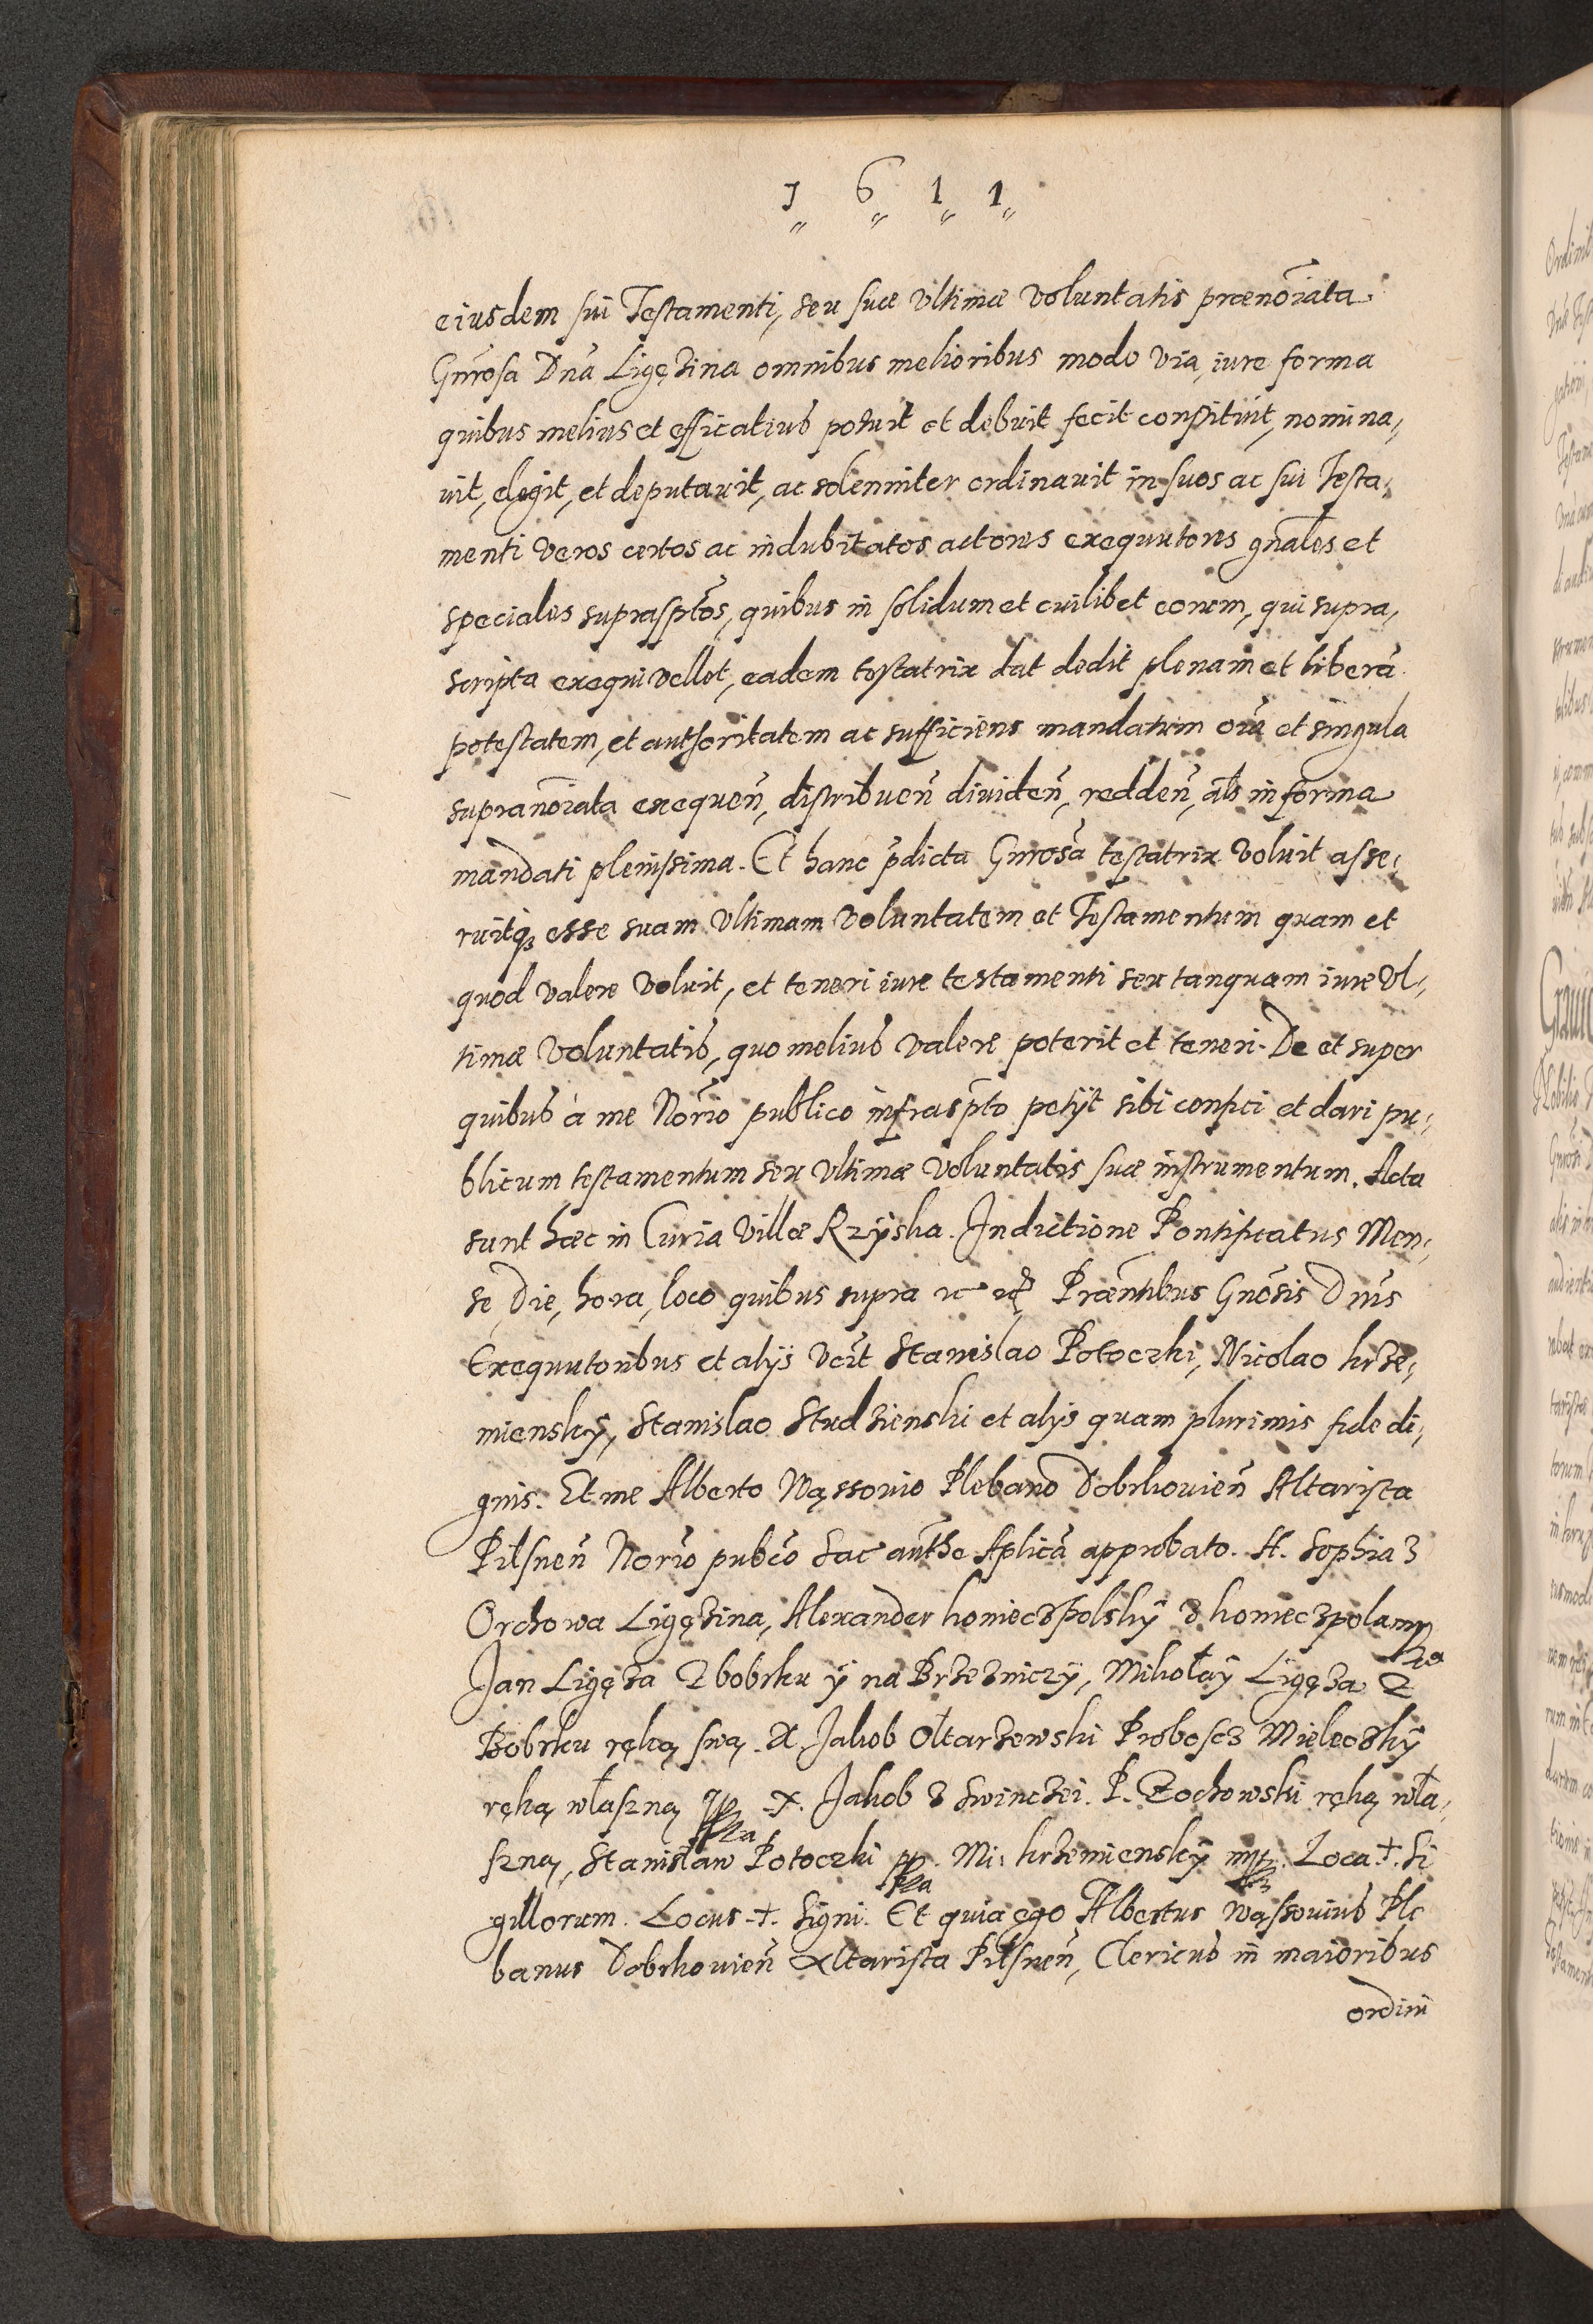 1 6 1 1
eiusdem sui Testamenti, seu suæ Vltimæ Voluntatis prænoïata
Gnrosa Dna Ligęzina omnibus melioribus modo via, iure forma
quibus melius et efficatius potuit et debuit fecit constituit, nomina,
uit, elegit, et deputauit, ac solenniter ordinauit in suos ac sui Testa,
menti veros certos ac indubitatos actores exequutores gnales et
speciales suprasptos, quibus in solidum et cuilibet eorum, qui supra,
scripta exequi vellet, eadem testatrix dat dedit plenam et liberā
potestatem, et authoritatem ac sufficiens mandatum oïa et singula
supranoïata exequeñ, distribueñ diuideñ, reddeñ, als in forma
mandati plenissima. Et hanc pdicta Gnrosa testatrix voluit asse,
ruitq3 esse suam Vltimam Voluntatem et Testamentum quam et
quod valere voluit, et teneri iure testamenti seu tanquam iure Vl,
timæ Voluntatis, quo melius valere poterit et teneri. De et super
quibus à me Norio publico infraspto petÿt sibi confici et dari pu,
blicum testamentum seu Vltimæ Voluntatis suæ instrumentum. Acta
sunt hæc in Curia Villæ Rzÿska. Indictione Pontificatus Men,
se, Die, hora, loco quibus supra Præntibus Gnosis Dnis
Exequutoribus et alÿs Vcit Stanislao Potoczki, Nicolao krze,
mienskÿ, Stanislao Studzienski et alÿs quam plurimis fide di,
gnis. Et me Alberto Wąssouio Plebano Dobrkouieñ Altarista
Pilsneñ Norio pubco Sac authe Aplica approbato. A. Sophia z
Orchowa Ligęzina, Alexander konieczpolskÿ z koniecpola mp
Jan Ligęza Z bobrku ÿ na Brzezniczÿ, Mikołaÿ Ligęza Z
Bobrku ręką swą. X. Jakob Ołtarzewski Proboscz Mieleczkÿ
ręką własną X. Jakob z Swinczei. P. Zochowski ręką wła,
szną, Stanisław Potoczki pp. Mi: krzemienskÿ mp. Loca †. Si
gillorum. Locus †. Signi. Et quia ego Albertus Wąssouius Ple
banus Dobrkouieñ Altarista Pilsneñ, Clericus in maioribus
ordini